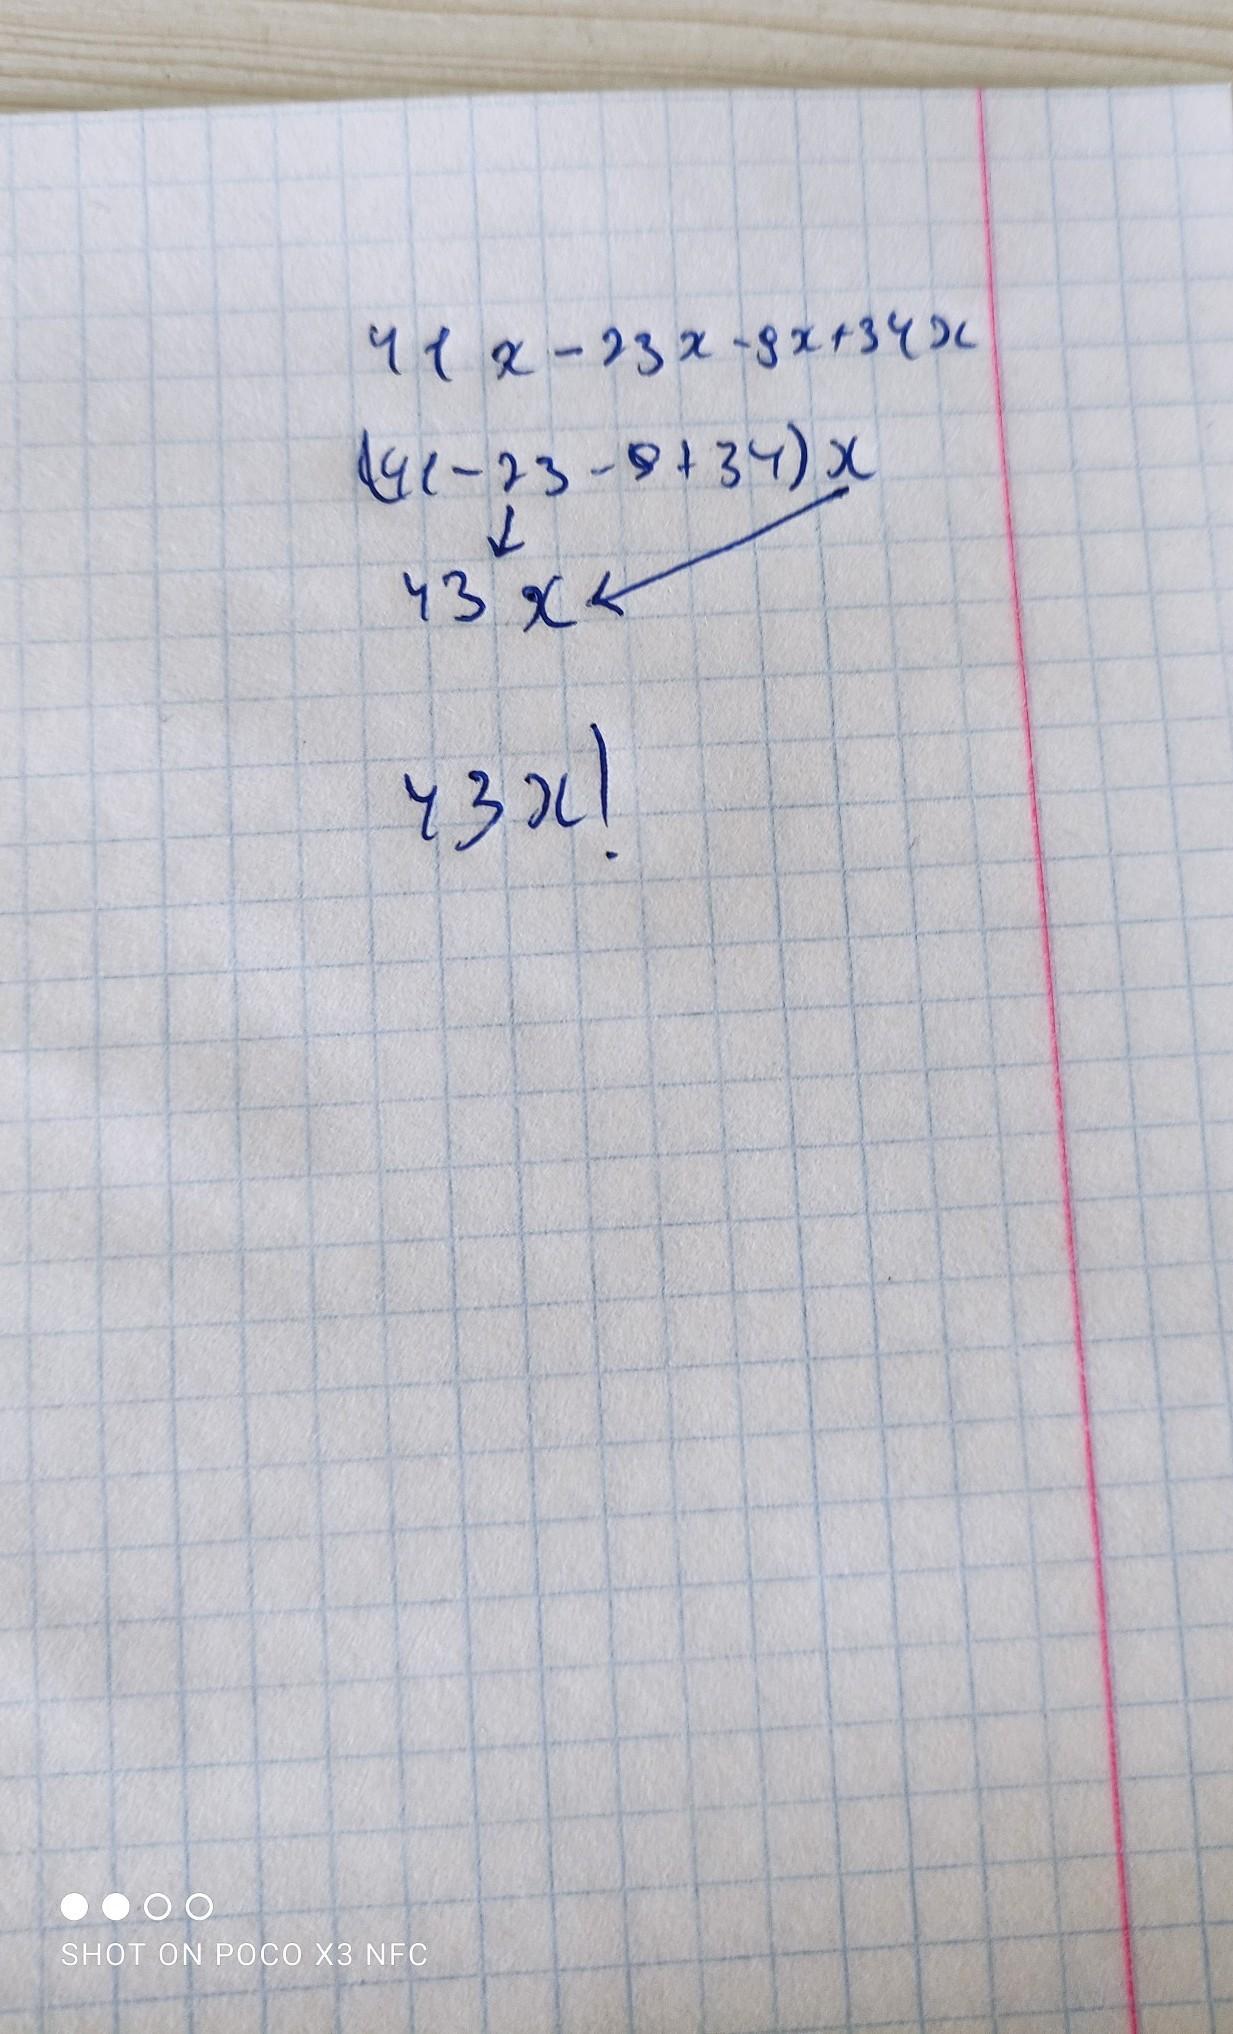 41x-23x-9x+34x
(41-23-9+34)x
43x
43x!
SHOT ON POCO X3 NFC